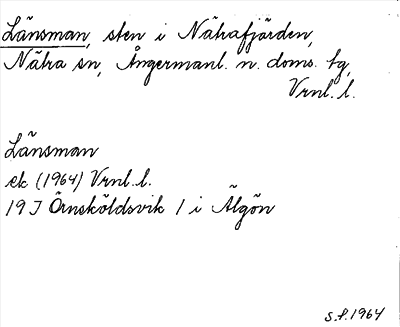 Länsman, sten i Nätrafjärden,
Nätra sn, Ångermanl. n. doms. tg,
Vrnl. l.
Länsman
ek (1964) Vrnl. l.
19 J Örnsköldsvik 1 i Älgön
S.F. 1964